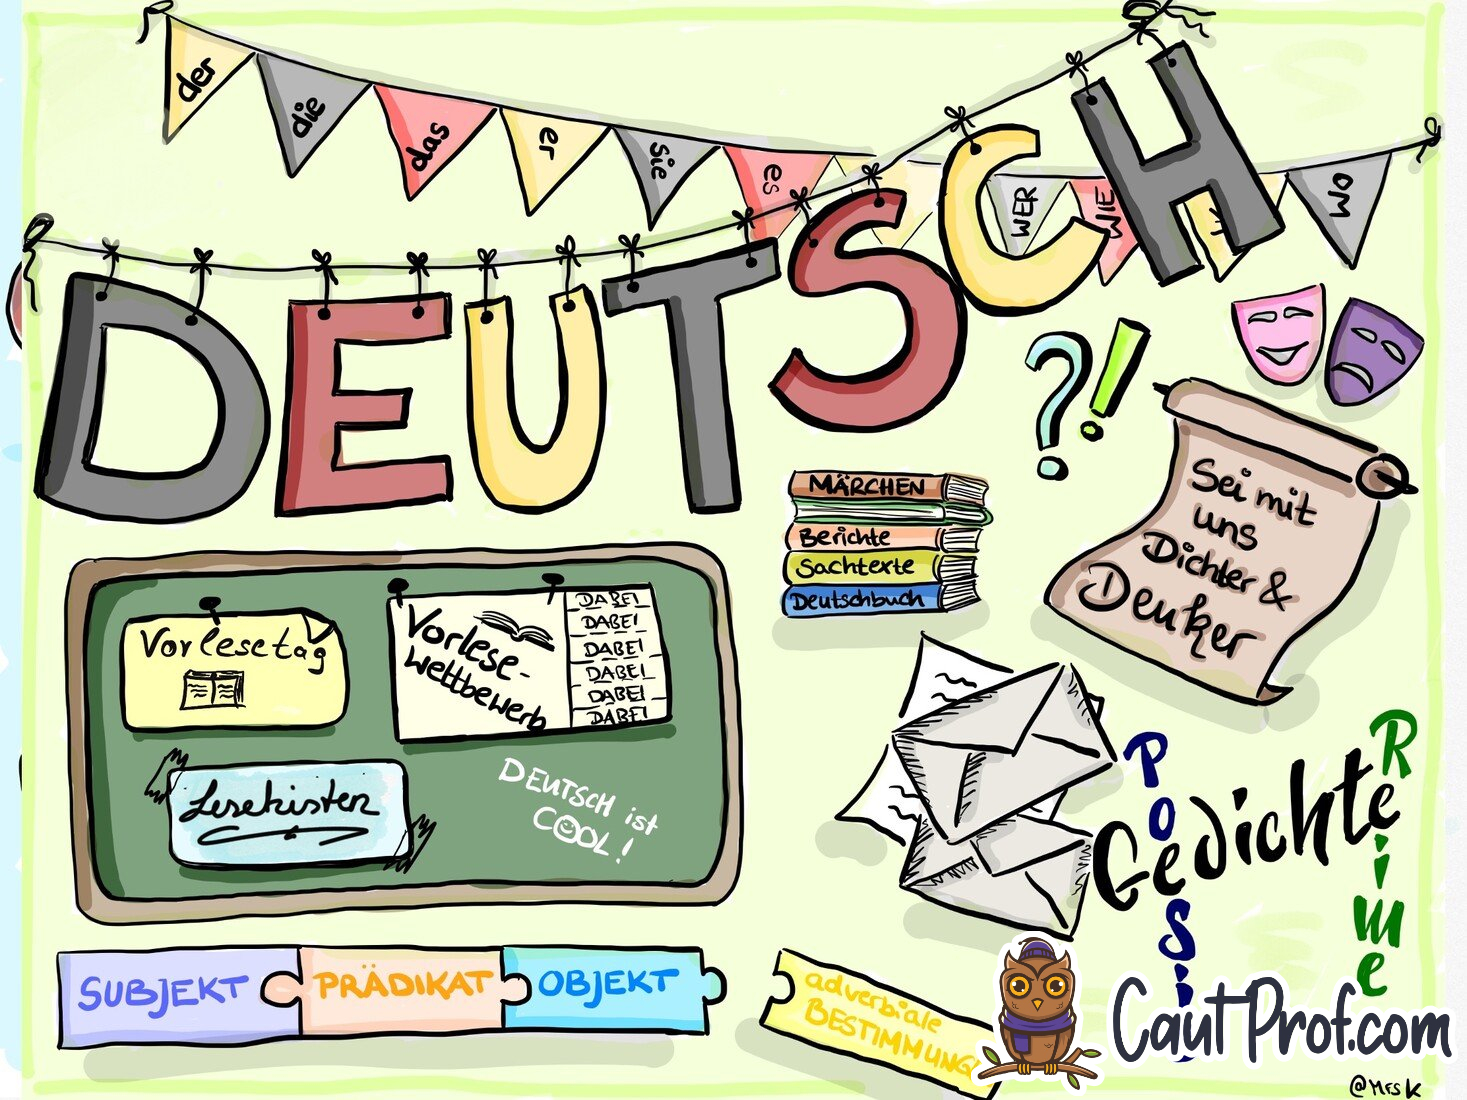 der
die
das
er
sie
es
WER
WIE
WO
DEUTSCH
?!
MÄRCHEN
Berichte
Sachtexte
Deutschbuch
Sei mit
uns
Dichter &
Denker
Vorlesetag
Vorlese-
wettbewerb
DABEI
DABEI
DABEI
DABEI
DABEI
DABEI
Lesekisten
DEUTSCH ist
COOL!
Poesi
Gedichte
Reime
SUBJEKT
PRÄDIKAT
OBJEKT
adverbiale
BESTIMMUNG
CautProf.com
@MFSK